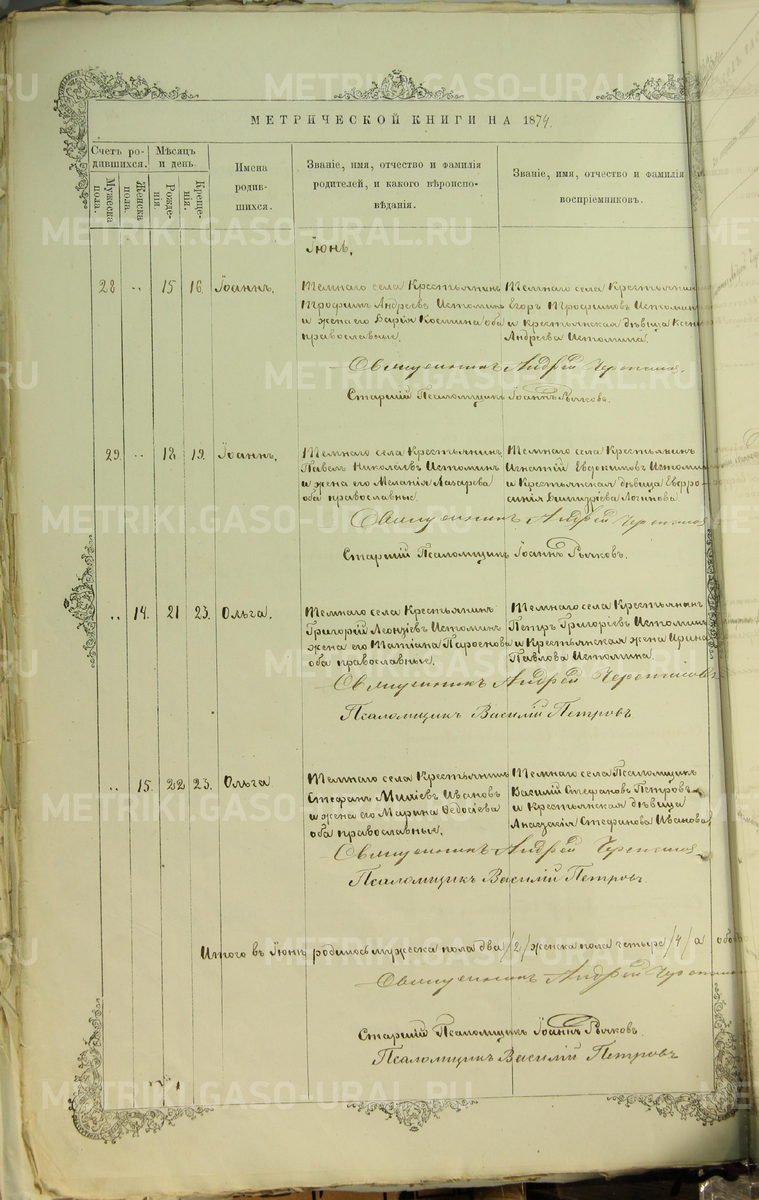 МЕТРИЧЕСКОЙ КНИГИ НА 1874.
Счетъ ро-
дившихся.
Мужеска
пола.
Женска
пола.
Мѣсяцъ
и день.
Рожде-
нія.
Креще-
нія.
Имена
родив-
шихся.
Званіе, имя, отчество и фамилія
родителей, и какого вѣроиспо-
вѣданія.
Званіе, имя, отчество и фамилія
воспріемниковъ.
Іюнь.
28 .. 15 16. Іоаннъ.
Темнаго села Крестьянинъ
Трофимъ Андреевъ Истоминъ
и жена его Дарія Космина оба
православные.
Темнаго села Крестьянинъ
Егоръ Трофимовъ Истоминъ
и крестьянская дѣвица
Андреева Истомина.
Священникъ Андрей
Старшій Псаломщикъ Іоаннъ Рычковъ.
29. .. 18 19. Іоаннъ.
Темнаго села Крестьянинъ
Павелъ Николаевъ Истоминъ
и жена его Меланія Лазарева
оба православные.
Темнаго села Крестьянинъ
Игнатій Евдокимовъ Истоминъ
и Крестьянская дѣвица Евфро-
синія Димитріева Логинова
Священникъ Андрей
Старшій Псаломщикъ Іоаннъ Рычковъ.
.. 14. 21 23. Ольга.
Темнаго села Крестьянинъ
Григорій Леонтіевъ Истоминъ
жена его Татіана Парфенова
оба православные.
Темнаго села Крестьянинъ
Петръ Григорьевъ Истоминъ
и Крестьянская жена Ирина
Павлова Истомина.
Священникъ Андрей
Псаломщикъ Василій Петровъ
.. 15. 22 23. Ольга
Темнаго села Крестьянинъ
Стефанъ Ивановъ
и жена его Марина Федосіева
оба православные.
Темнаго села Псаломщикъ
Василій Стефановъ Петровъ
и Крестьянская дѣвица
Анастасія Стефанова Иванова
Священникъ Андрей
Псаломщикъ Василій Петровъ.
Итого въ Іюнѣ родилось мужеска пола два /2/ женска пола четыре /4/ а обоего
Священникъ Андрей
Старшій Псаломщикъ Іоаннъ Рычковъ.
Псаломщикъ Василій Петровъ
METRIKI.GASO-URAL.RU